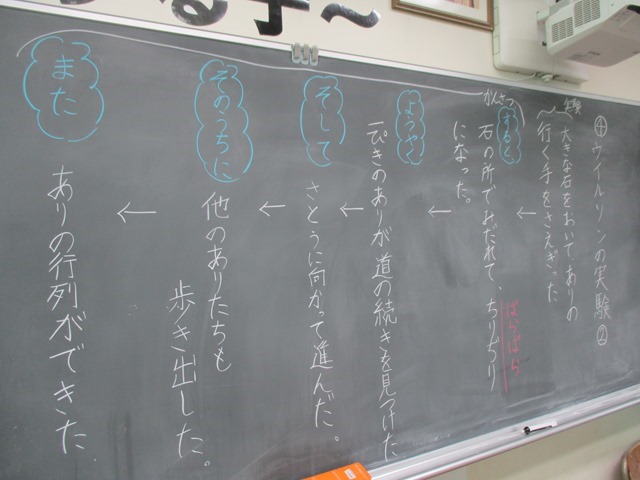 ④ウイルソンの実験②
実験
大きな石をおいてありの
行く手をさえぎった
かんさつ
すると
石の所でみだれて、ちりぢり
ばらばら
になった。
ようやく
一ぴきのありが道の続きを見つけた
そして
さとうに向かって進んだ。
そのうちに
他のありたちも
歩き出した。
また
ありの行列ができた